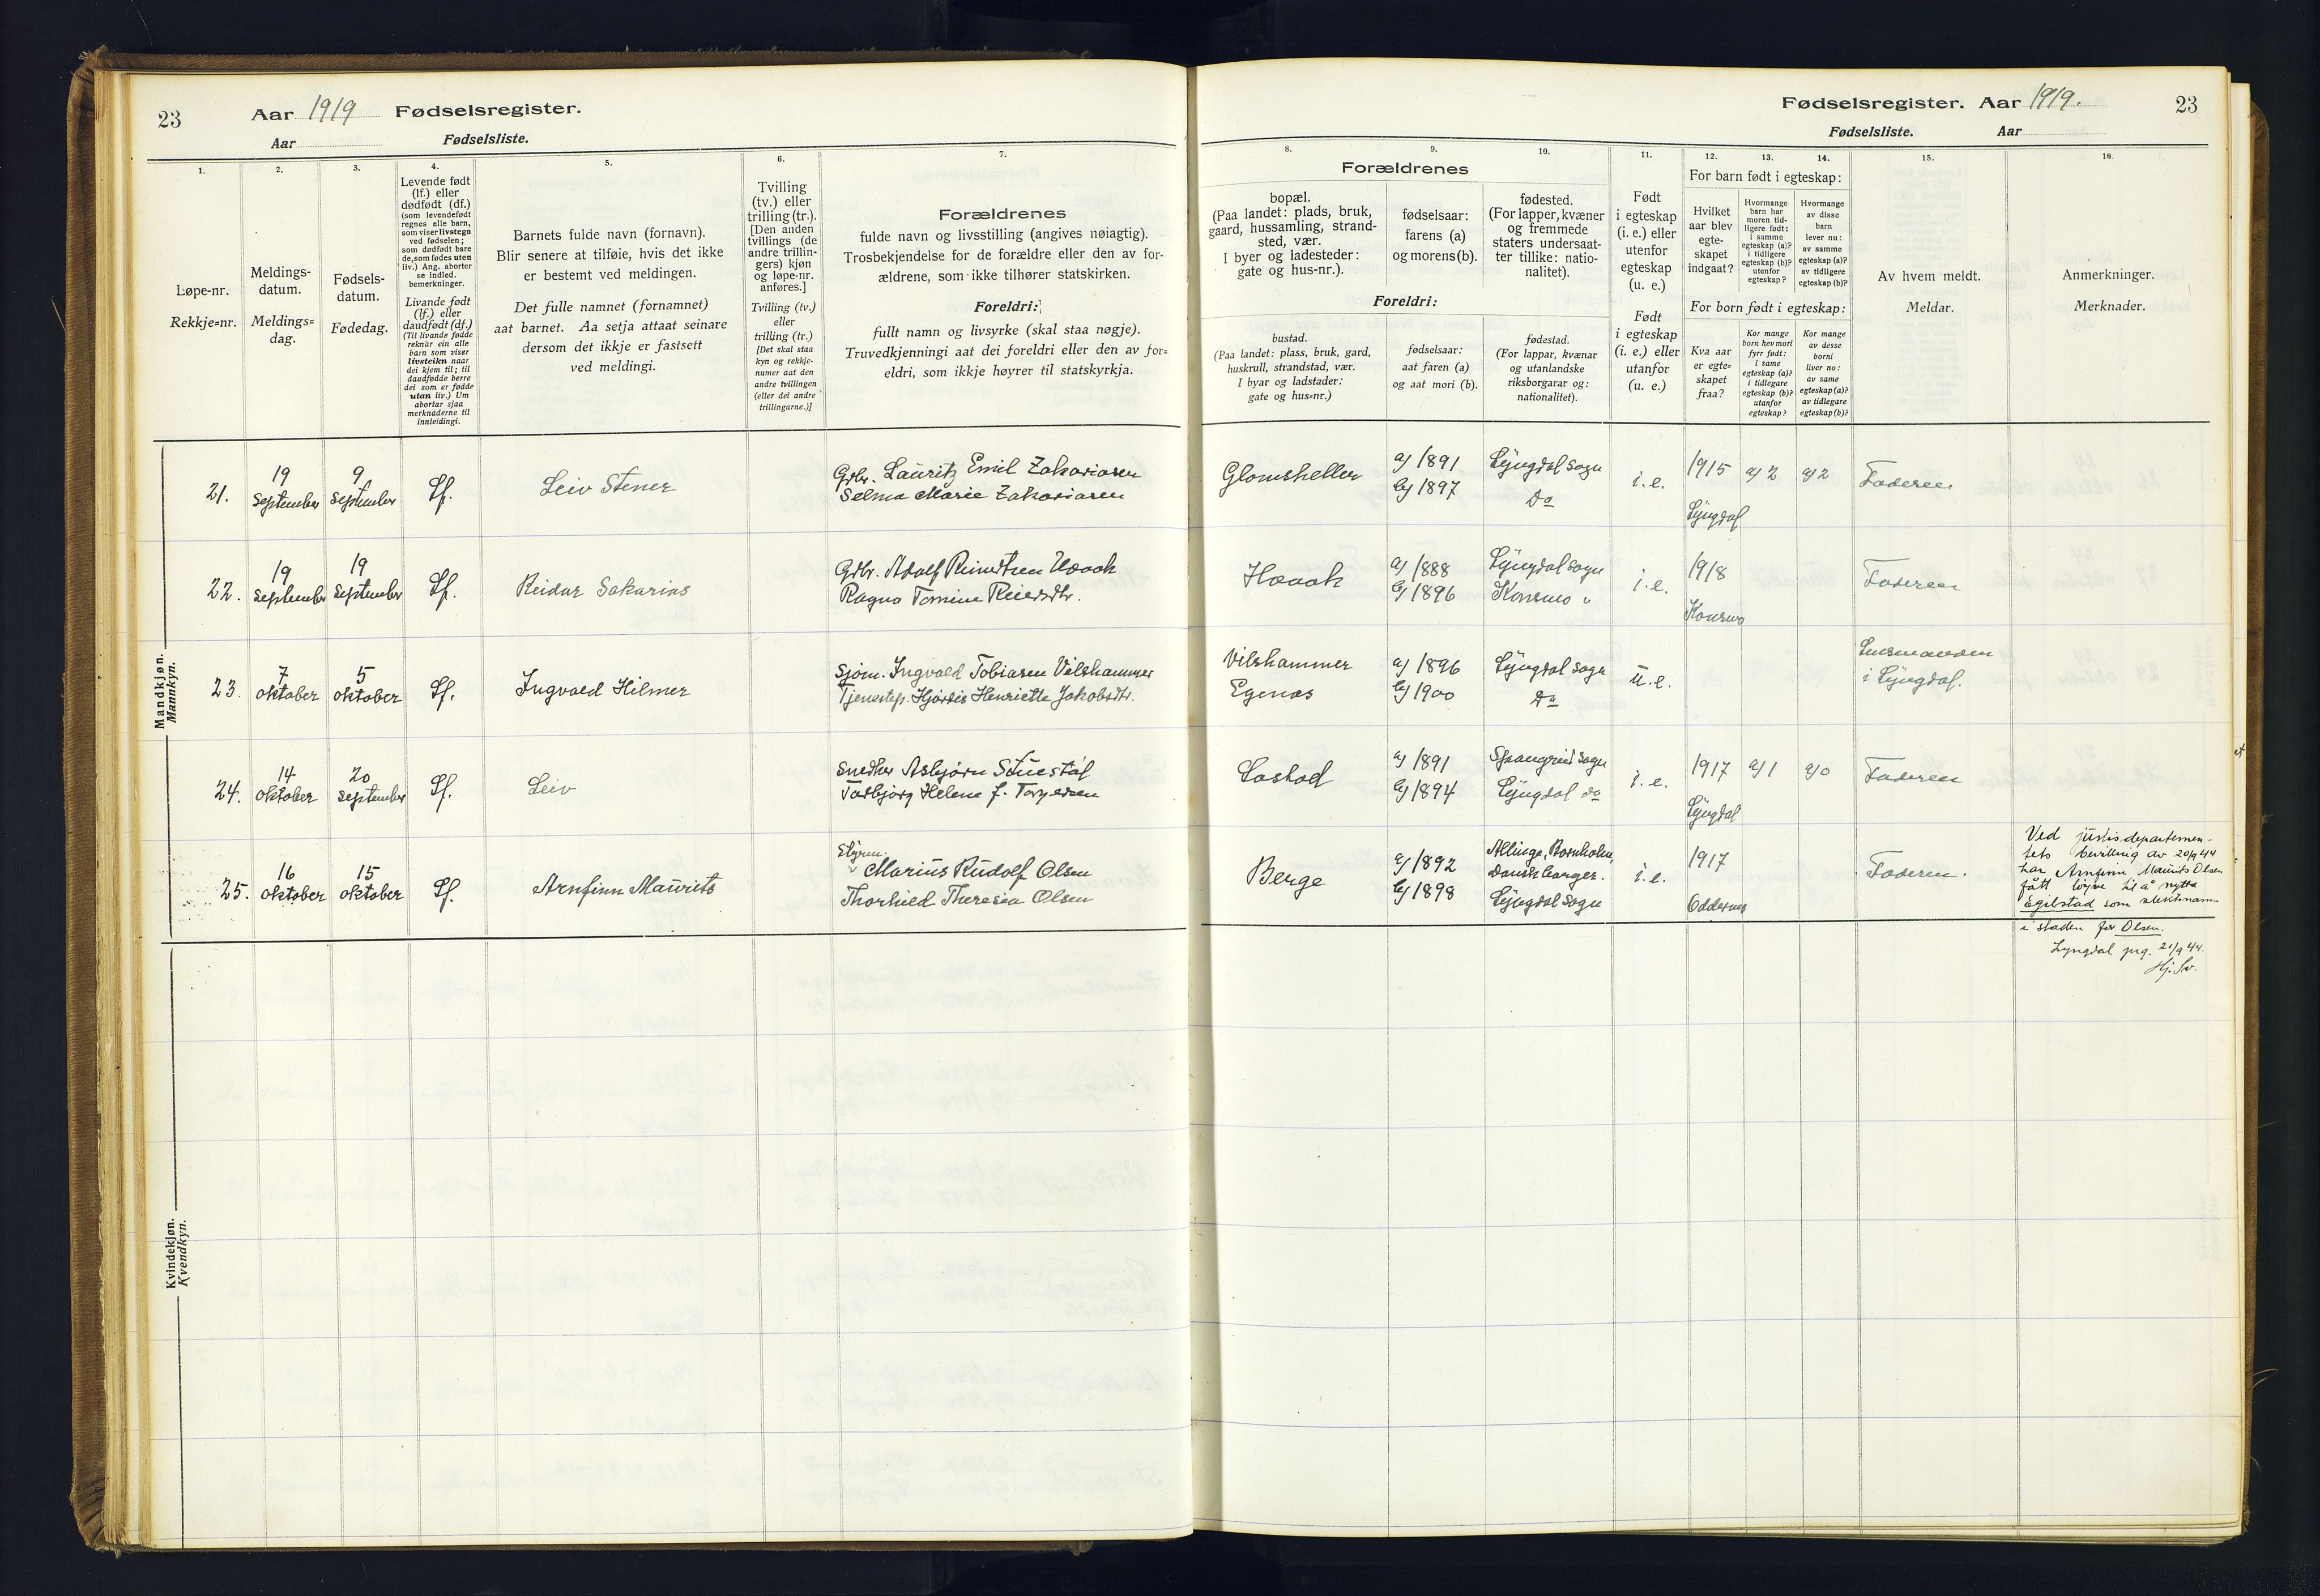 23
Aar 1919 Fødselsregister.
Aar Fødselsliste.
1.
2.
3.
4.
5.
6.
7.
Løpe-nr.
Rekkje=nr.
Meldings-
datum.
Meldings=
dag.
Fødsels-
datum.
Fødedag.
Levende født
(lf.) eller
dødfødt (df.)
(som levendefødt
regnes alle barn,
som viser livstegn
ved fødselen;
som dødfødt bare
de, som fødes uten
liv.) Ang. aborter
se indled.
bemerkninger.
Livande født
(lf.) eller
daudfødt (df.)
(Til livande fødde
reknar ein alle
barn som viser
livsteikn naar
dei kjem til; til
daudfødde berre
dei som er fødde
utan liv.) Um
abortar sjaa
merknaderne til
innleidingi.
Barnets fulde navn (fornavn).
Blir senere at tilføie, hvis det ikke
er bestemt ved meldingen.
Det fulle namnet (fornamnet)
aat barnet. Aa setja attaat seinare
dersom det ikkje er fastsett
ved meldingi.
Tvilling
(tv.) eller
trilling (tr.).
[Den anden
tvillings (de
andre trillin-
gers) kjøn
og løpe-nr.
anføres.]
Tvilling (tv.)
eller
trilling (tr.)
[Det skal staa
kyn og rekkje-
numer aat den
andre tvillingen
(eller dei andre
trillingarne.)]
Forældrenes
fulde navn og livsstilling (angives nøiagtig).
Trosbekjendelse for de forældre eller den av for-
ældrene, som ikke tilhører statskirken.
Foreldri:
fullt namn og livsyrke (skal staa nøgje).
Truvedkjenningi aat dei foreldri eller den av for=
eldri, som ikkje høyrer til statskyrkja.
Mandkjøn.
Mannkyn.
21. 19 September 9 September Lf. Leiv Stener Grbr. Lauritz Emil Zakariasen
Selma Marie Zakariasen
22. 19 September 19 September Lf. Reidar Sakarias Grbr. Adolf Reinertsen Haaak
Ragna Tomine Reiersdtr.
23. 7 oktober 5 oktober Lf. Ingvald Hilmer Sjøm. Ingvald Tobiasen Vilshammer
Tjenestep. Hjørdis Henriette Jakobsdtr.
24. 14 oktober 20 September Lf. Leiv Snedker Asbjørn
Torbjørg Helene f. Torgersen
25. 16 oktober 15 oktober Lf. Arnfinn Maurits Styrm.
Marius Rudolf Olsen
Thorhild Theresia Olsen
Kvindekjøn.
Kvendkyn.
Fødselsregister. Aar 1919. 23
Fødselsliste. Aar
8.
9.
10.
11.
12.
13.
14.
15.
16.
Forældrenes
bopæl.
(Paa landet: plads, bruk,
gaard, hussamling, strand-
sted, vær.
I byer og ladesteder:
gate og hus-nr.).
fødselsaar:
farens (a)
og morens (b).
fødested.
(For lapper, kvæner
og fremmede
staters undersaat-
ter tillike: natio-
nalitet).
Foreldri:
bustad.
(Paa landet: plass, bruk, gard,
huskrull, strandstad, vær.
I byar og ladstader:
gate og hus=nr.)
fødselsaar:
aat faren (a)
og aat mori (b).
fødestad.
(For lappar, kvænar
og utanlandske
riksborgarar og:
nationalitet).
Født
i egteskap
(i. e.) eller
utenfor
egteskap
(u. e.)
Født
i egteskap
(i. e.) eller
utanfor
(u. e.)
For barn født i egteskap:
Hvilket
aar blev
egte-
skapet
indgaat?
Hvormange
barn har
moren tid-
ligere født:
i samme
egteskap (a)?
i tidligere
egteskap (b)?
utenfor
egteskap?
Hvormange
av disse
barn
lever nu:
av samme
egteskap (a)?
av tidligere
egteskap (b)?
For born født i egteskap:
Kva aar
er egte=
skapet
fraa?
Kor mange
born hev mori
fyrr født:
i same
egteskap (a)?
i tidlegare
egteskap (b)?
utanfor
egteskap?
Kor mange
av desse
borni
liver no:
av same
egteskap (a)?
av tidlegare
egteskap (b)?
Av hvem meldt.
Meldar.
Anmerkninger.
Merknader.
Glomsheller a) 1891 Lyngdal sogn i. e. 1915 a) 2 a) 2 Faderen
b) 1897 Do Lyngdal
Haaak a) 1888 Lyngdal sogn i. e. 1918 Faderen
b) 1896 Konsmo " Konsmo
Vilshammer a) 1896 Lyngdal sogn u. e. Lensmanden
Egenes b) 1900 Do i Lyngdal.
a) 1891 sogn i. e. 1917 a) 1 a) 0 Faderen
b) 1894 Lyngdal do Lyngdal
Berge a) 1892 Allinge, Bornholm, i. e. 1917 Faderen.
Dansk borger.
b) 1898 Lyngdal sogn Oddernes
Ved justisdepartemen-
tets bevilling av 20/9 44
har Arnfinn Maurits Olsen
fått løyve til å nytta
Egilstad som slektsnamn
i staden for Olsen.
Lyngdal prg. 21/9 44.
Hj. Sv.